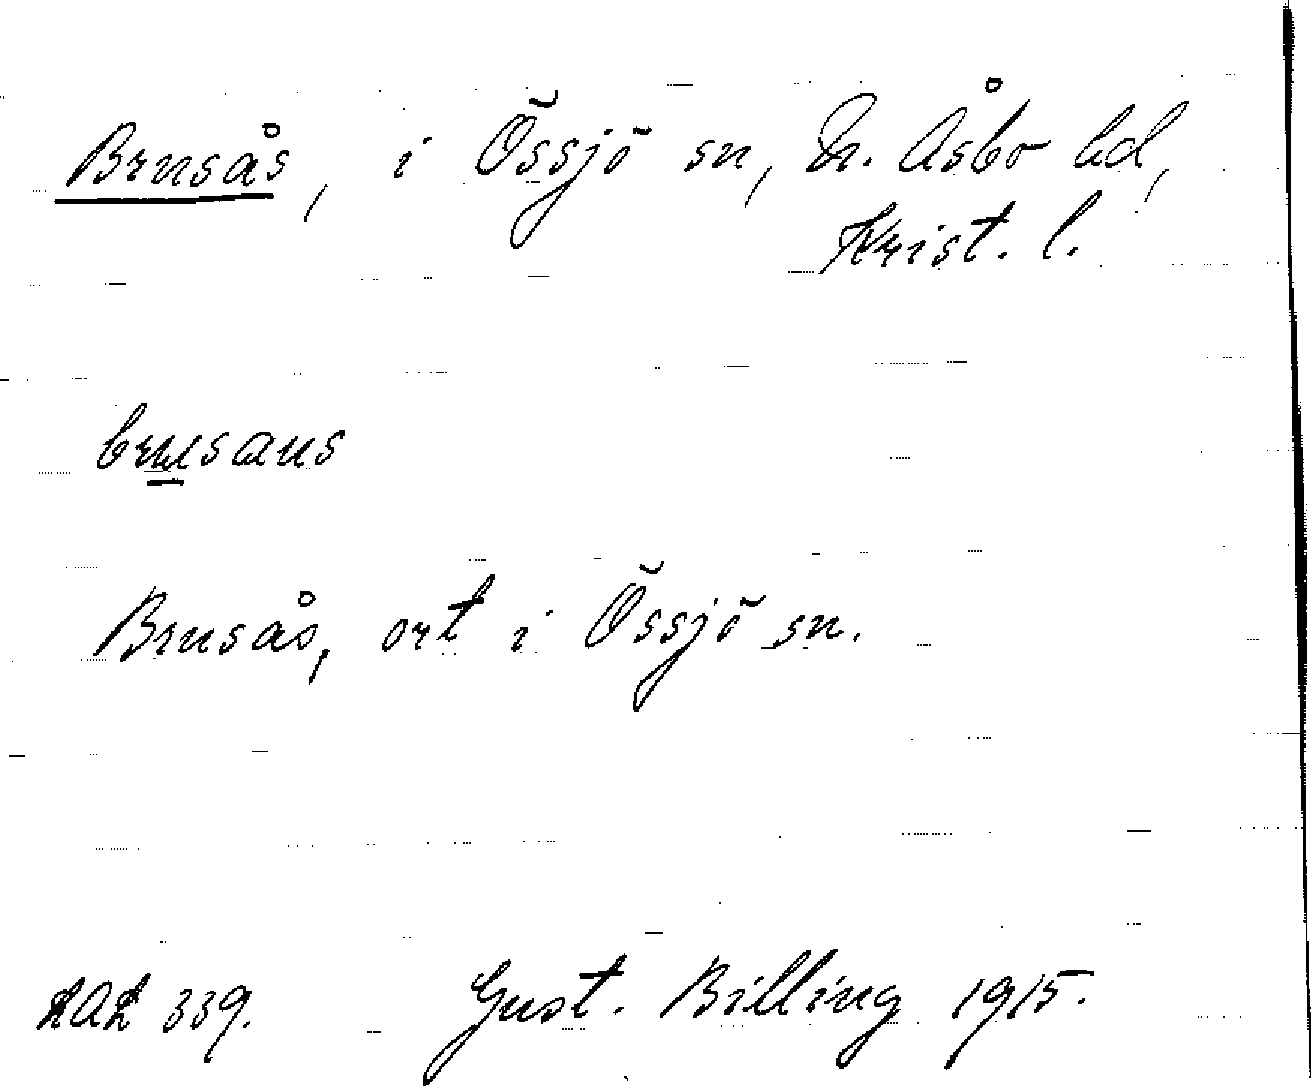 Brusås, i Össjö sn, N. Åsbo hd,
Krist. l.
brusaus
Brusås, ort i Össjö sn.
LAL 339. Gust. Billing 1915.